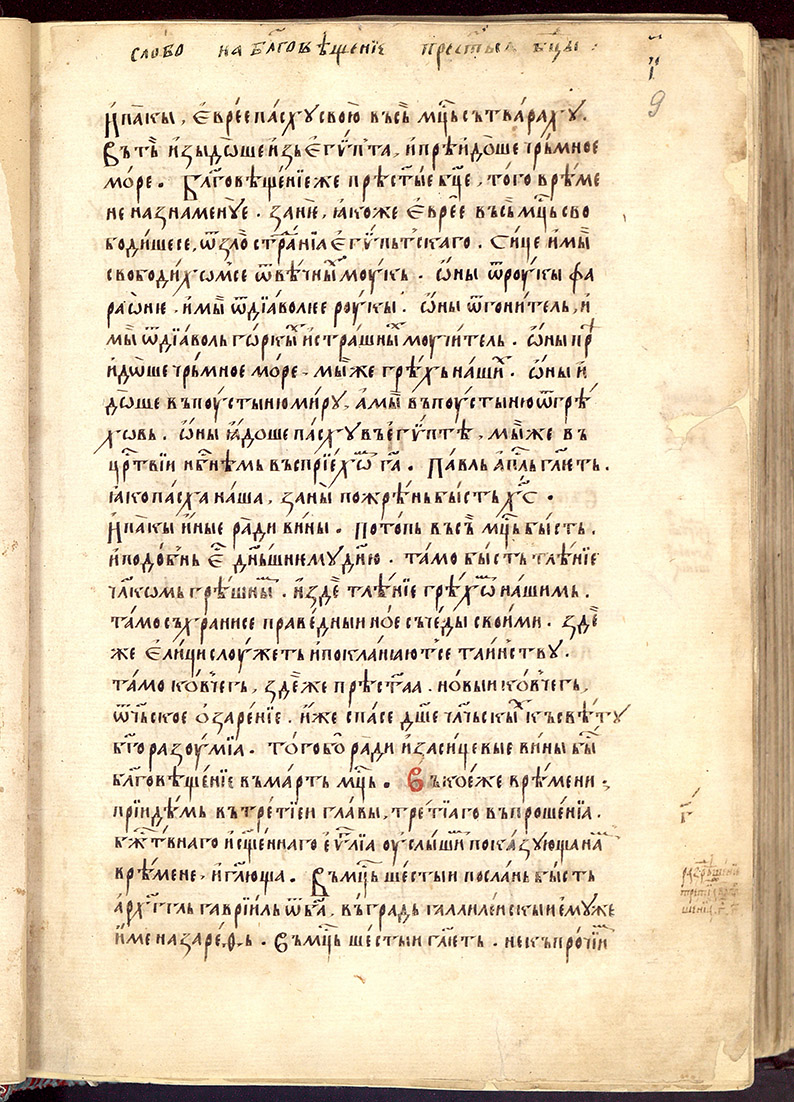 слово на бл҃говѣщенїе прест҃ыѥ бц҃ы :
ї
9
И҆па́кы, є҆вре́е па́схꙋ свою̀ въсь̀ мцⷭ҇ь сътвара́хꙋ.
Въть̀ и҆зыдо́ше и҆зь є҆гѵ́пта, и҆ прѣидо́ше чръ́мное
мо́ре. Бл҃говѣще́нїе же прѣст҃ые бц҃е, того̀ врѣ́ме
не назнаменꙋ́е. занѐ, ꙗ҆коже є҆вре́е въсь̀ мцⷭ҇ь сво
боди́шесе, ѿ зло̀ страда́нїа є҆гѵ́пьтскаго. Си́це и҆ мы̀
свободи́хомсе ѿ вѣ́чныⷯ моукь. ѡ҆́ны ѿ роукы̀ фа
раѡ́не, и҆ мы̀ ѿ дїа́волнее роукы̀. ѡ҆́ны ѿ гони́тель, и҆
мы̀ ѿ дїа́воль го́ркыⷯ и҆ стра́шныⷯ моучи́тель. ѡ҆́ны прѣ
идо́ше чръ́мное мо́ре, мы́же грѣ́хь на́шиⷯ. ѡ҆́ны и҆
до́ше въ поусты́ню ми́рꙋ, а҆ мы̀ въ поусты́ню ѿ грѣ́
ховь. ѡ҆́ны ꙗ҆до́ше па́схꙋ въ є҆гѵ́птѣ, мы́же въ
црⷭ҇твїи нбⷭ҇нѣмь въспрїе́хѡⷨ га҃. Па́вль а҆пⷭ҇ль гл҃еть.
ꙗ҆ко па́сха на́ша, за ны̀ пожрѣ́нь бы́сть хс҃.
И҆па́кы и҆ны́е ра́ди вины̀. Пото́пь въсь̀ мцⷭ҇ь бы́сть.
и҆ подо́бнь є҆ⷭ҇ дн҃ьшнемꙋ дн҃ю. та́мо бы́сть тлѣ́нїе
чл҃комь грѣ́шныⷨ. и҆ здѐ тлѣ́нїе грѣ́хѡⷨ на́шимь.
та́мо съхра́нисе пра́ведныи но́е съ че́ды свои́ми. здѐ
же є҆ли́ци слоу́жеть и҆ покла́нꙗютсе та́инствꙋ.
та́мо ко́вчегь, здѐ же прѣст҃аа. но́выи ко́вчегь,
ѿчьское ѻ҆заре́нїе. и҆́же спа́се дш҃е чл҃чьскыⷯ къ свѣ́тꙋ
бг҃оразоу́мїа. То́го бо̀ ра́ди и҆ за си́цевые вины̀ бы́
бл҃говѣще́нїе въ ма́рть мцⷭ҇ь. Въ ко́е же врѣ́мени;
прїи́демь къ тре́тїеи главы̀, тре́тїаго въпроше́нїа.
бжⷭ҇твнаго и҆ сщ҃е́ннаго є҆ѵⷢ҇лїа оу҆слы́шиⷨ показꙋ́юща наⷨ
врѣ́мене, и҆ гл҃юща. Въ мцⷭ҇ь шесты́и по́слань бы́сть
а҆рхг҃гль гаврїи́ль ѿ ба҃, въ гра́дь галиле́искыи є҆мꙋ́же
и҆́ме назаре́ѳь. Въ мцⷭ҇ь ше́стыи гл҃еть. не къ про́чїиⷨ